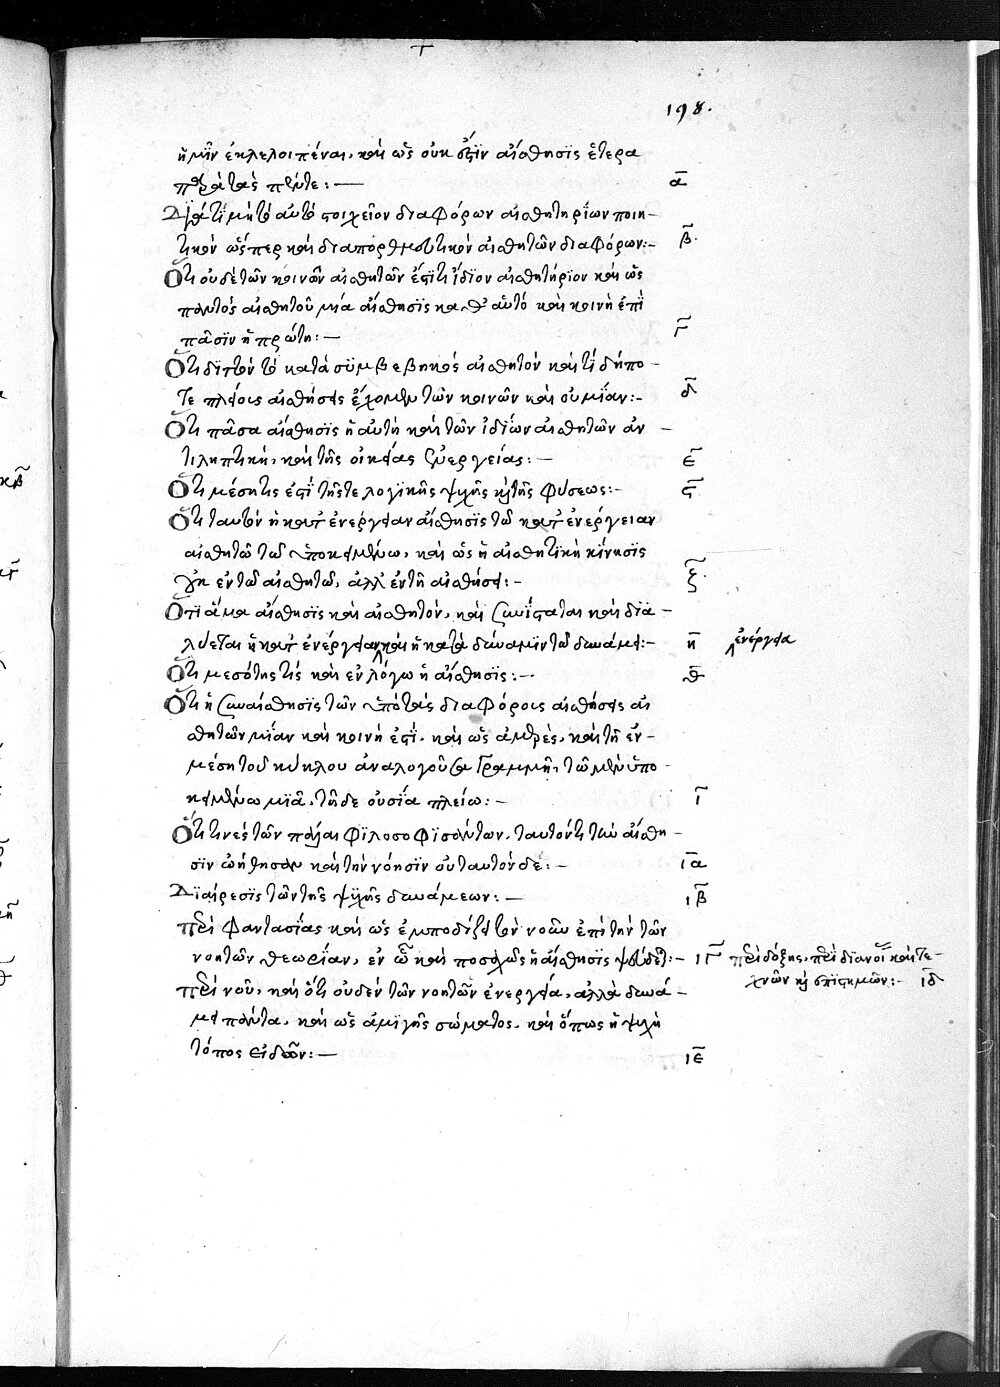 198.
ἡμῖν ἐκλελοιπέναι, καὶ ὡς οὐκ ἔστιν αἴσθησις ἑτέρα
παρὰ τὰς πέντε:— α
Διὰ τί μὴ τὸ αὐτὸ στοιχεῖον διαφόρων αἰσθητηρίων ποιη-
τικὸν ὥσπερ καὶ διαπορθμευτικὸν αἰσθητῶν διαφόρων:— β
Ὅτι οὐδὲ τῶν κοινῶν αἰσθητῶν ἐστί τι ἴδιον αἰσθητήριον καὶ ὡς
παντὸς αἰσθητοῦ μία αἴσθησις καθ' αὑτὸ καὶ κοινὴ ἐπὶ
πᾶσιν ἡ πρώτη:— γ
Ὅτι διττὸν τὸ κατὰ συμβεβηκὸς αἰσθητὸν καὶ τί δήπο-
τε πλείους αἰσθήσεις ἔχομεν τῶν κοινῶν καὶ οὐ μίαν:— δ
Ὅτι πᾶσα αἴσθησις ἡ αὐτὴ καὶ τῶν ἰδίων αἰσθητῶν ἀν-
τιληπτικὴ, καὶ τῆς οἰκείας ἐνεργείας:— ε
Ὅτι μέση τίς ἐστὶ τῆς τε λογικῆς ψυχῆς καὶ τῆς φύσεως:— ϛ
Ὅτι ταυτὸν ἡ κατ' ἐνέργειαν αἴσθησις τῷ κατ' ἐνέργειαν
αἰσθητῷ τῷ ὑποκειμένῳ, καὶ ὡς ἡ αἰσθητικὴ κίνησις
οὐκ ἐν τῷ αἰσθητῷ, ἀλλ' ἐν τῇ αἰσθήσει:— ζ
Ὅτι ἅμα αἴσθησις καὶ αἰσθητὸν, καὶ συνίσταται καὶ δια-
λύεται ἡ κατ' ἐνέργειαν καὶ ἡ κατὰ δύναμιν τῷ δυνάμει:— η ἐνεργείᾳ
Ὅτι μεσότης τίς καὶ ἐν λόγῳ ἡ αἴσθησις:— θ
Ὅτι ἡ συναίσθησις τῶν ὑπὸ τὰς διαφόρους αἰσθήσεις αἰ
σθητῶν μίαν καὶ κοινὴ ἐστὶ, καὶ ὡς ἀμερὲς, καὶ τῇ ἐν
μέσῃ τοῦ κύκλου ἀναλογοῦσα γραμμῇ, τῷ μὲν ὑπο-
κειμένῳ μία, τῇ δὲ οὐσίᾳ πλείω:— ι
Ὅτι τινὲς τῶν πάλαι φιλοσοφισάντων, ταυτόν τι τὴν αἴσθη-
σιν ᾠήθησαν καὶ τὴν νόησιν οὐ ταυτὸν δέ:— ια
Διαίρεσις τῶν τῆς ψυχῆς δυνάμεων:— ιβ
περὶ φαντασίας καὶ ὡς ἐμποδίζει τὸν νοῦν ἐπὶ τὴν τῶν
νοητῶν θεωρίαν, ἐν ᾧ καὶ ποσαχῶς ἡ αἴσθησις ψεύδεται:— ιγ περὶ δόξης, περὶ διανοίας καὶ τε-
χνῶν καὶ ἐπιστημῶν:— ιδ
περὶ νοῦ, καὶ ὅτι οὐδὲν τῶν νοητῶν ἐνεργείᾳ, ἀλλὰ δυνά-
μει πάντα, καὶ ὡς ἀμιγὴς σώματος, καὶ ὅπως ἡ ψυχὴ
τόπος εἰδῶν:— ιε